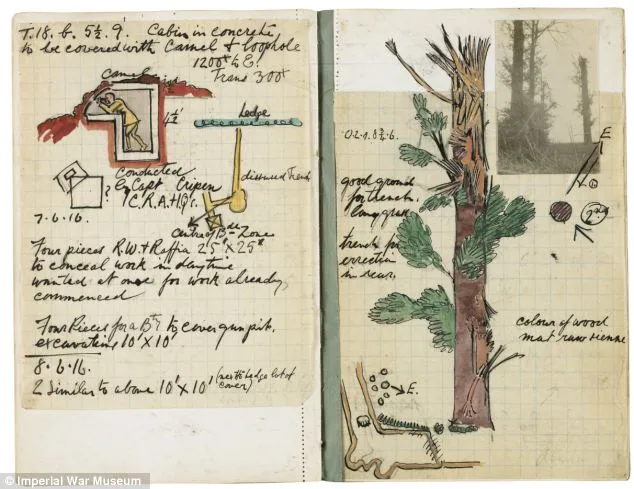 T.18. b. 5½. 9. Cabin in concrete
to be covered with Camel & loophole
1200ˣ to E.
Trans 300ˣ
Camel
4½'
Hedge
disused Trench
Conducted
by Capt
C.R.A. HQrs.
?
7-6-16.
Centre of Bde Zone
Four pieces R.W. & Raffia 25' X 25'
to conceal work in daytime
wanted at once for work already
commenced
Four Pieces for a Bty to cover gun pit.
excavations 10' X 10'
8.6.16.
2 Similar to above 10' X 10' (next hedge lot of
cover)
good ground
for trench.
long grass
trench for
erection
in rear.
E
2nd
colour of wood
mat raw sienne
E.
© Imperial War Museum